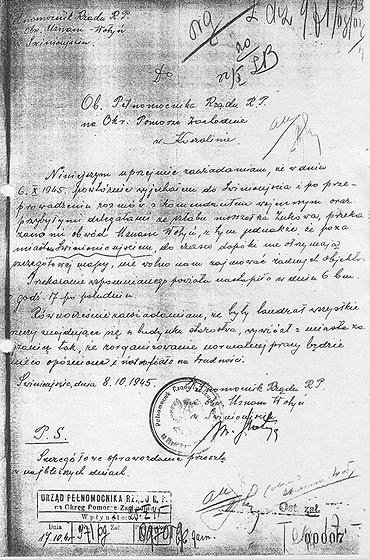 Pełnomocnik Rządu R.P.
na Obw. Uznam-Wołyń
w Świnioujściu.
Ob. Pełnomocnika Rządu R.P.
na Okr. Pomorze Zachodnie
w Koszalinie
Niniejszym uprzejmie zawiadamiam, że w dniu
6. X 1945. powtórnie wyjechałem do Świnioujścia i po prze-
prowadzeniu rozmów z komendantem wojennym oraz
przybyłymi delegatami ze sztabu marszałka Żukowa, przeka-
zano mi obwód Uznam Wołyń, z tym jednakże, że poza
miastem Świnioujściem, do czasu dopóki nie otrzymają
szczegółowej mapy, nie wolno nam zajmować żadnych objektów.
Przekazanie wspomnianego powiatu nastąpiło w dniu 6 bm.
godz. 17 po południu.
Równocześnie zawiadamiam, że były landrat wszystkie
znajdujące się w budynku starostwa, wywiózł z miasta za
granicę tak, że zorganizowanie normalnej pracy będzie
nieco opóźnione i natrafiało na trudności.
Świnioujście, dnia 8.10.1945.
Pełnomocnik Rządu R.P.
na obw. Uznam Wołyń
w Świnioujściu
P.S.
Szczegółowe sprawozdanie prześlę
w najbliższych dniach.
URZĄD PEŁNOMOCNIKA RZĄDU R.P.
na Okręg Pomorze Zachodnie
Wpłynęło
Dnia 17.10.45